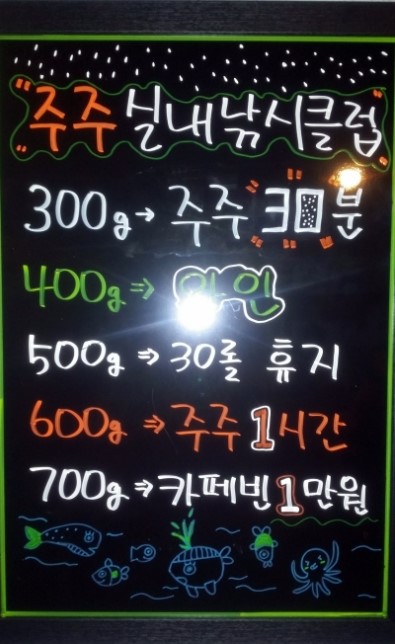 "주주 실내낚시클럽"
300g → 주주 "30"분
400g ⇒ 와인
500g ⇒ 30롤 휴지
600g ⇒ 주주 1시간
700g ⇒ 카페빈 1만원